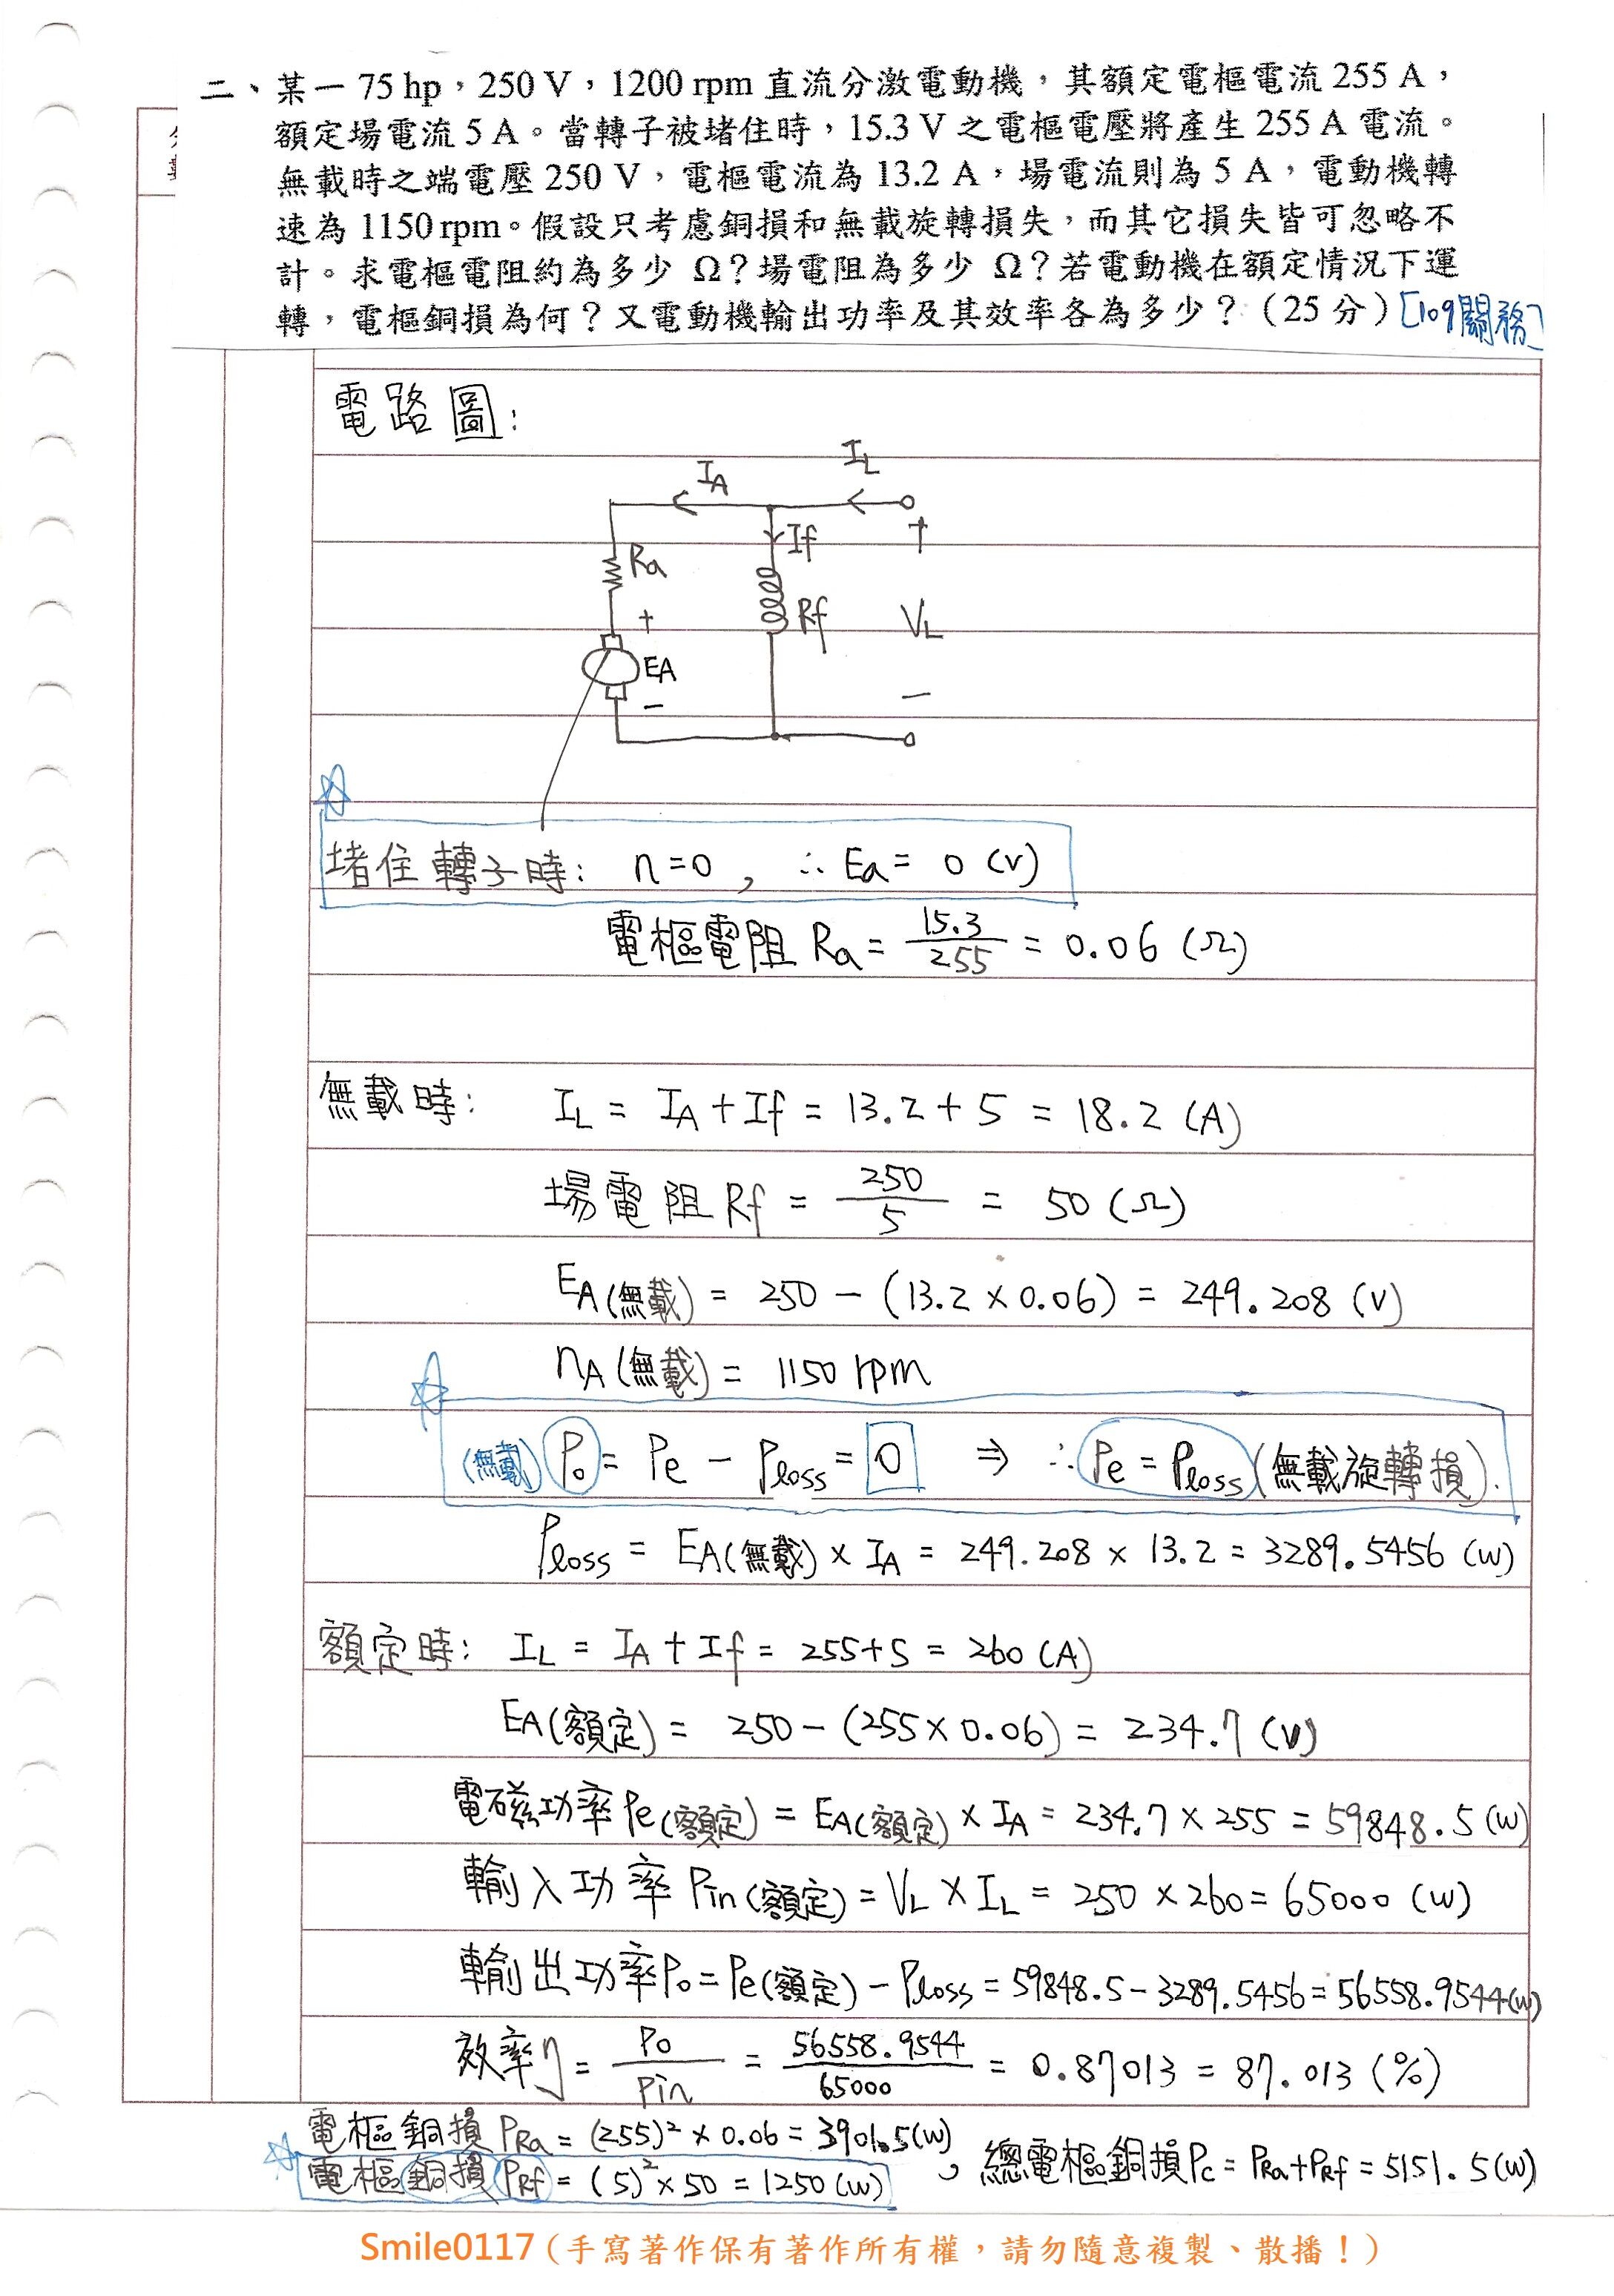 二、某一 75 hp，250 V，1200 rpm 直流分激電動機，其額定電樞電流 255 A，
額定場電流 5 A。當轉子被堵住時，15.3 V 之電樞電壓將產生 255 A 電流。
無載時之端電壓 250 V，電樞電流為 13.2 A，場電流則為 5 A，電動機轉
速為 1150 rpm。假設只考慮銅損和無載旋轉損失，而其它損失皆可忽略不
計。求電樞電阻約為多少 Ω？場電阻為多少 Ω？若電動機在額定情況下運
轉，電樞銅損為何？又電動機輸出功率及其效率各為多少？（25 分）[109關務]
電路圖:
IA IL
If
Ra
+ Rf VL
EA
−
−
堵住轉子時: n=0 , ∴ Ea = 0 (V)
電樞電阻 Ra = 15.3/255 = 0.06 (Ω)
無載時: IL = IA + If = 13.2 + 5 = 18.2 (A)
場電阻 Rf = 250/5 = 50 (Ω)
EA(無載) = 250 − (13.2 × 0.06) = 249.208 (V)
nA(無載) = 1150 rpm
(無載) Po = Pe − Ploss = 0 ⇒ ∴ Pe = Ploss (無載旋轉損).
Ploss = EA(無載) × IA = 249.208 × 13.2 = 3289.5456 (W)
額定時: IL = IA + If = 255+5 = 260 (A)
EA(額定) = 250 − (255 × 0.06) = 234.7 (V)
電磁功率 Pe(額定) = EA(額定) × IA = 234.7 × 255 = 59848.5 (W)
輸入功率 Pin(額定) = VL × IL = 250 × 260 = 65000 (W)
輸出功率 Po = Pe(額定) − Ploss = 59848.5 − 3289.5456 = 56558.9544 (W)
效率 η = Po/Pin = 56558.9544/65000 = 0.87013 = 87.013 (%)
電樞銅損 PRa = (255)² × 0.06 = 3901.5(W)
電樞銅損 PRf = (5)² × 50 = 1250 (W) , 總電樞銅損 Pc = PRa + PRf = 5151.5(W)
Smile0117（手寫著作保有著作所有權，請勿隨意複製、散播！）